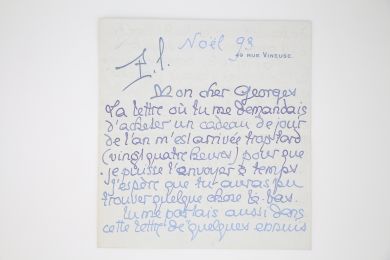 Noël 93
F. l.
49 RUE VINEUSE
Mon cher Georges
Ta lettre où tu me demandais
d'acheter un cadeau de jour
de l'an m'est arrivée trop tard
(vingt quatre heures) pour que
je puisse l'envoyer à temps.
J'espère que tu auras pu
trouver quelque chose là-bas.
Tu me parlais aussi dans
cette lettre de quelques ennuis